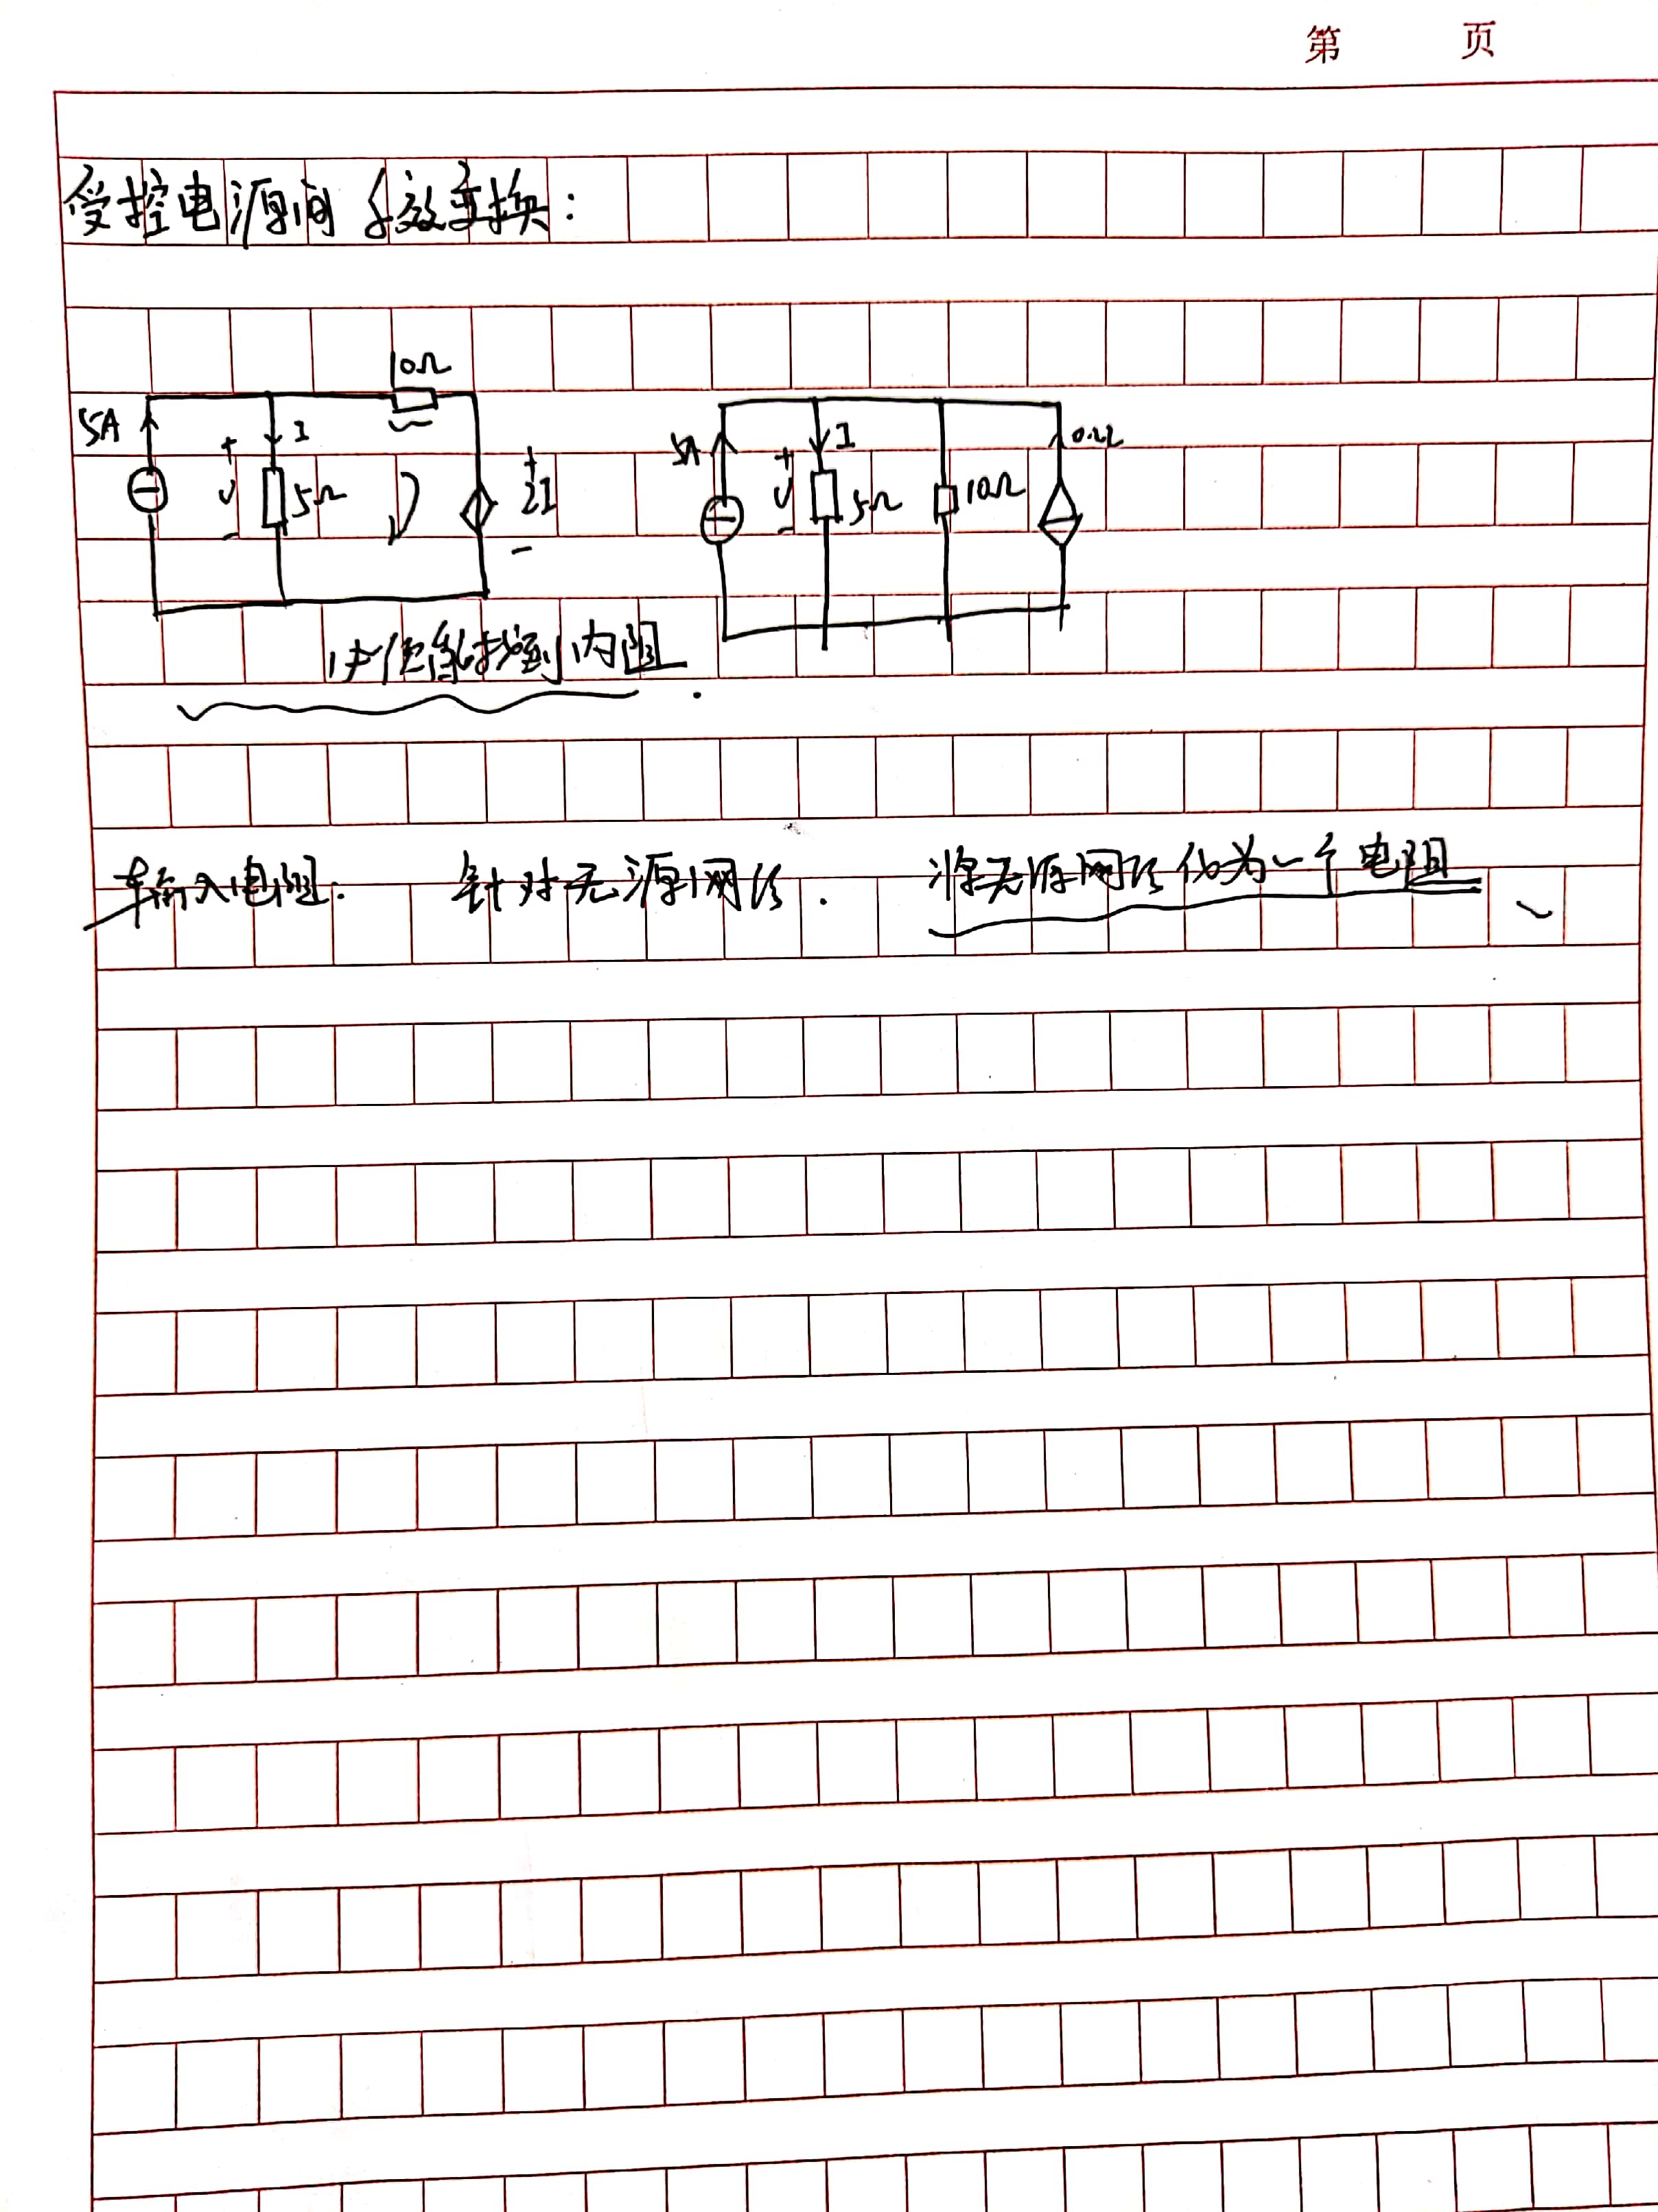 第 页
受控电源间等效变换:
10Ω
5A + U - I 5Ω + 2I -
5A + U - I 5Ω 10Ω 0.2I
能找到内阻
输入电阻. 针对无源网络. 将无源网络化为一个电阻